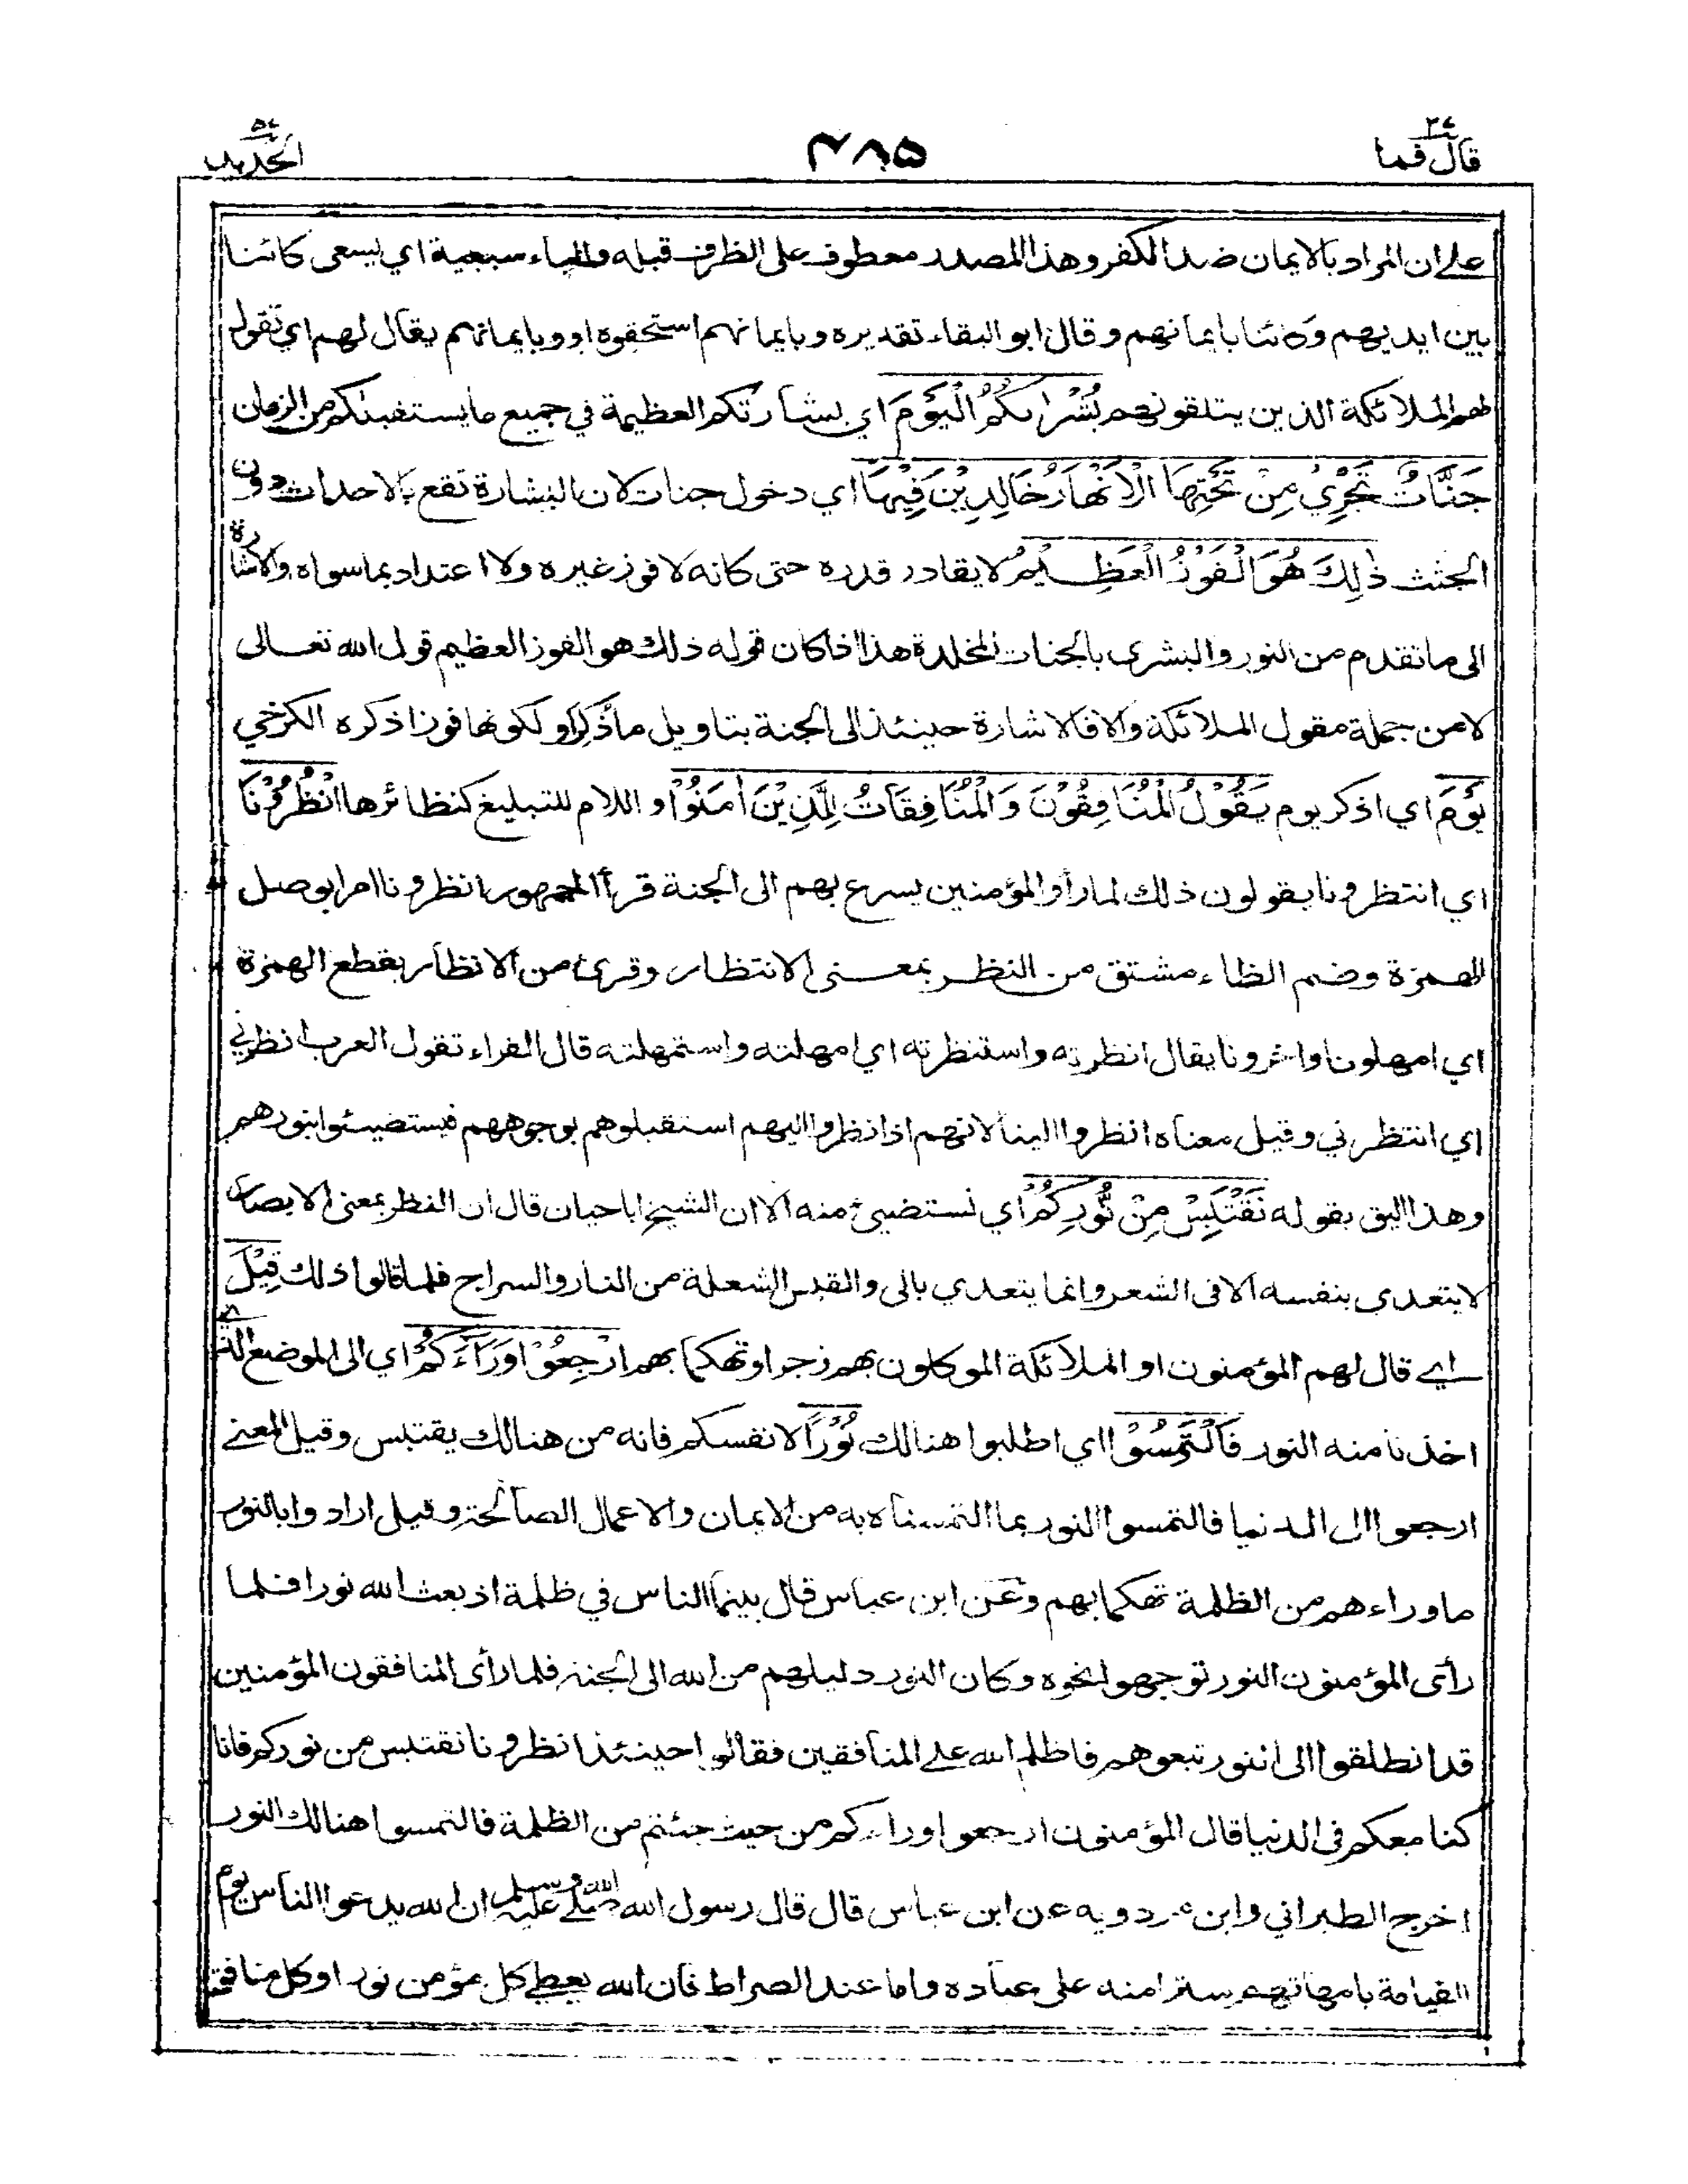 قال فما ٢٧
٤٨٥
الحديد ٥٧
على ان المراد بالايمان ضد الكفر وهذا المصدر معطوف على الظرف قبله والباء سببية اي يسعى كائنا
بين ايديهم وكائنا بايمانهم وقال ابو البقاء تقديره وبايمانهم استحقوه او وبايمانهم يقال لهم اي تقول
لهم الملائكة الذين يتلقونهم بُشْرٰىكُمُ الْيَوْمَ اي بشارتكم العظيمة في جميع ما يستقبلكم من الزمان
جَنَّاتٌ تَجْرِيْ مِنْ تَحْتِهَا الْاَنْهَارُ خَالِدِيْنَ فِيْهَا اي دخول جنات لان البشارة تقع بالاحداث دون
الجثث ذٰلِكَ هُوَ الْفَوْزُ الْعَظِيْمُ لا يقادر قدره حتى كانه لا فوز غيره ولا اعتداد بما سواه والاشارة
الى ما تقدم من النور والبشرى بالجنات المخلدة هذا اذا كان قوله ذلك هو الفوز العظيم قول الله تعالى
لا من جملة مقول الملائكة والا فالاشارة حينئذ الى الجنة بتاويل ما ذكر او لكونها فوزا ذكره الكرخي
يَوْمَ اي اذكر يوم يَقُوْلُ الْمُنَافِقُوْنَ وَالْمُنَافِقَاتُ لِلَّذِيْنَ اٰمَنُوْا واللام للتبليغ كنظائرها انْظُرُوْنَا
اي انتظرونا يقولون ذلك لما رأوا المؤمنين يسرع بهم الى الجنة قرأ الجمهور انظرونا امرا بوصل
الهمزة وضم الظاء مشتق من النظر بمعنى الانتظار وقرئ من الانظار بقطع الهمزة
اي امهلونا واخرونا يقال انظرته واستنظرته اي امهلته واستمهلته قال الفراء تقول العرب انظرني
اي انتظرني وقيل معناه انظروا الينا لانهم اذا نظروا اليهم استقبلوهم بوجوههم فيستضيئوا بنورهم
وهذا اليق بقوله نَقْتَبِسْ مِنْ نُّوْرِكُمْ اي نستضيئ منه الا ان الشيخ ابا حيان قال ان النظر بمعنى الابصار
لا يتعدى بنفسه الا فى الشعر وانما يتعدي بالى والقبس الشعلة من النار والسراج فلما قالوا ذلك قِيْلَ
اي قال لهم المؤمنون او الملائكة الموكلون بهم زجرا وتهكما بهم ارْجِعُوْا وَرَآءَكُمْ اي الى الموضع الذي
اخذنا منه النور فَالْتَمِسُوْا اي اطلبوا هنالك نُوْرًا لانفسكم فانه من هنالك يقتبس وقيل المعنى
ارجعوا الى الدنيا فالتمسوا النور بما التمسناه به من الايمان والاعمال الصالحة وقيل ارادوا بالنور
ما وراءهم من الظلمة تهكما بهم وعن ابن عباس قال بينما الناس في ظلمة اذ بعث الله نورا فلما
رأى المؤمنون النور توجهوا نحوه وكان النور دليلهم من الله الى الجنة فلما رأى المنافقون المؤمنين
قد انطلقوا الى النور تبعوهم فاظلم الله على المنافقين فقالوا حينئذ انظرونا نقتبس من نوركم فانا
كنا معكم فى الدنيا قال المؤمنون ارجعوا وراءكم من حيث جئتم من الظلمة فالتمسوا هنالك النور
اخرج الطبراني وابن مردويه عن ابن عباس قال قال رسول الله صلى الله عليه وسلم ان الله يدعوا الناس يوم
القيامة بامهاتهم سترا منه على عباده واما عند الصراط فان الله يعطي كل مؤمن نورا وكل منافق